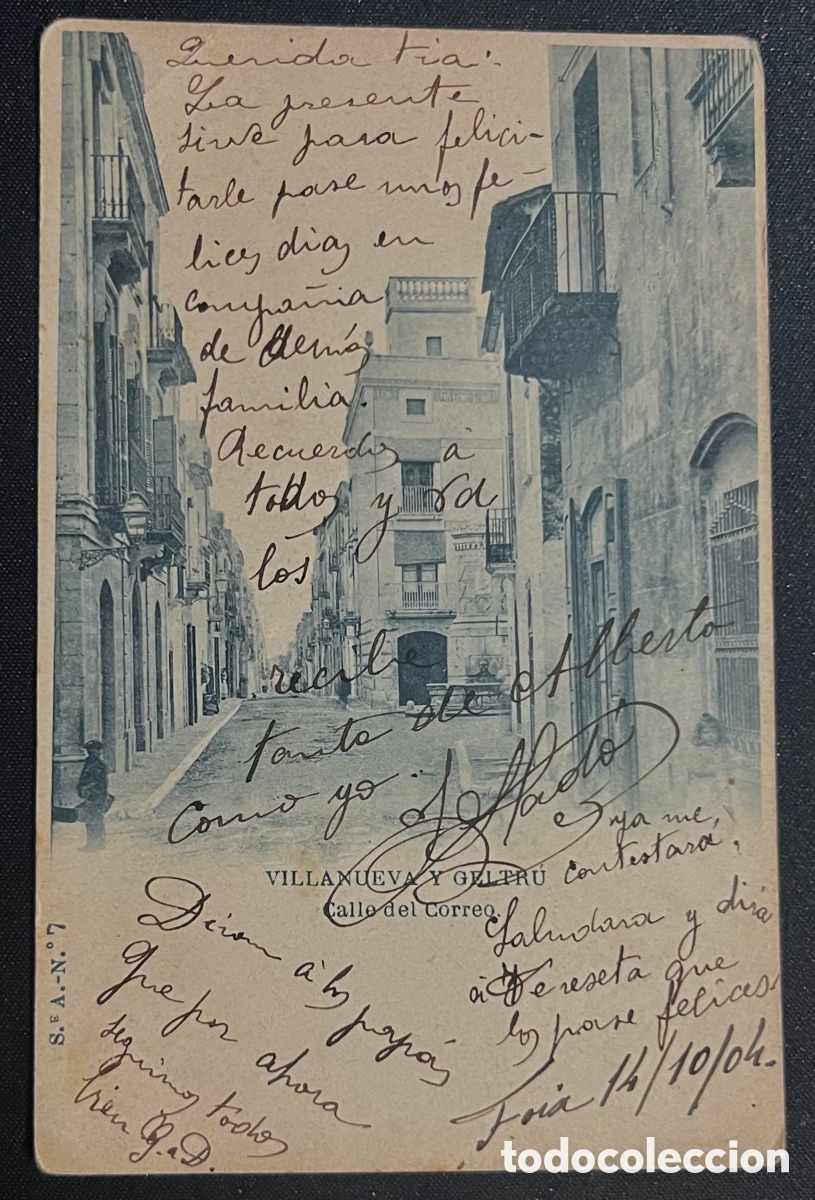 Querida tia:
La presente
sirve para felici-
tarle pase unos fe-
lices dias en
compañia
de demás
familia.
Recuerdos á
todos y Vd
los
recibe
tanto de Alberto
como yo
ya me
contestará,
VILLANUEVA Y GELTRÚ
Calle del Correo.
S.E A.-N.º 7
Diran á los papás
que por ahora
seguimos todos
bien G. a D.
Saludara y dira
á Tereseta que
los pase felices.
14/10/04.
todocoleccion